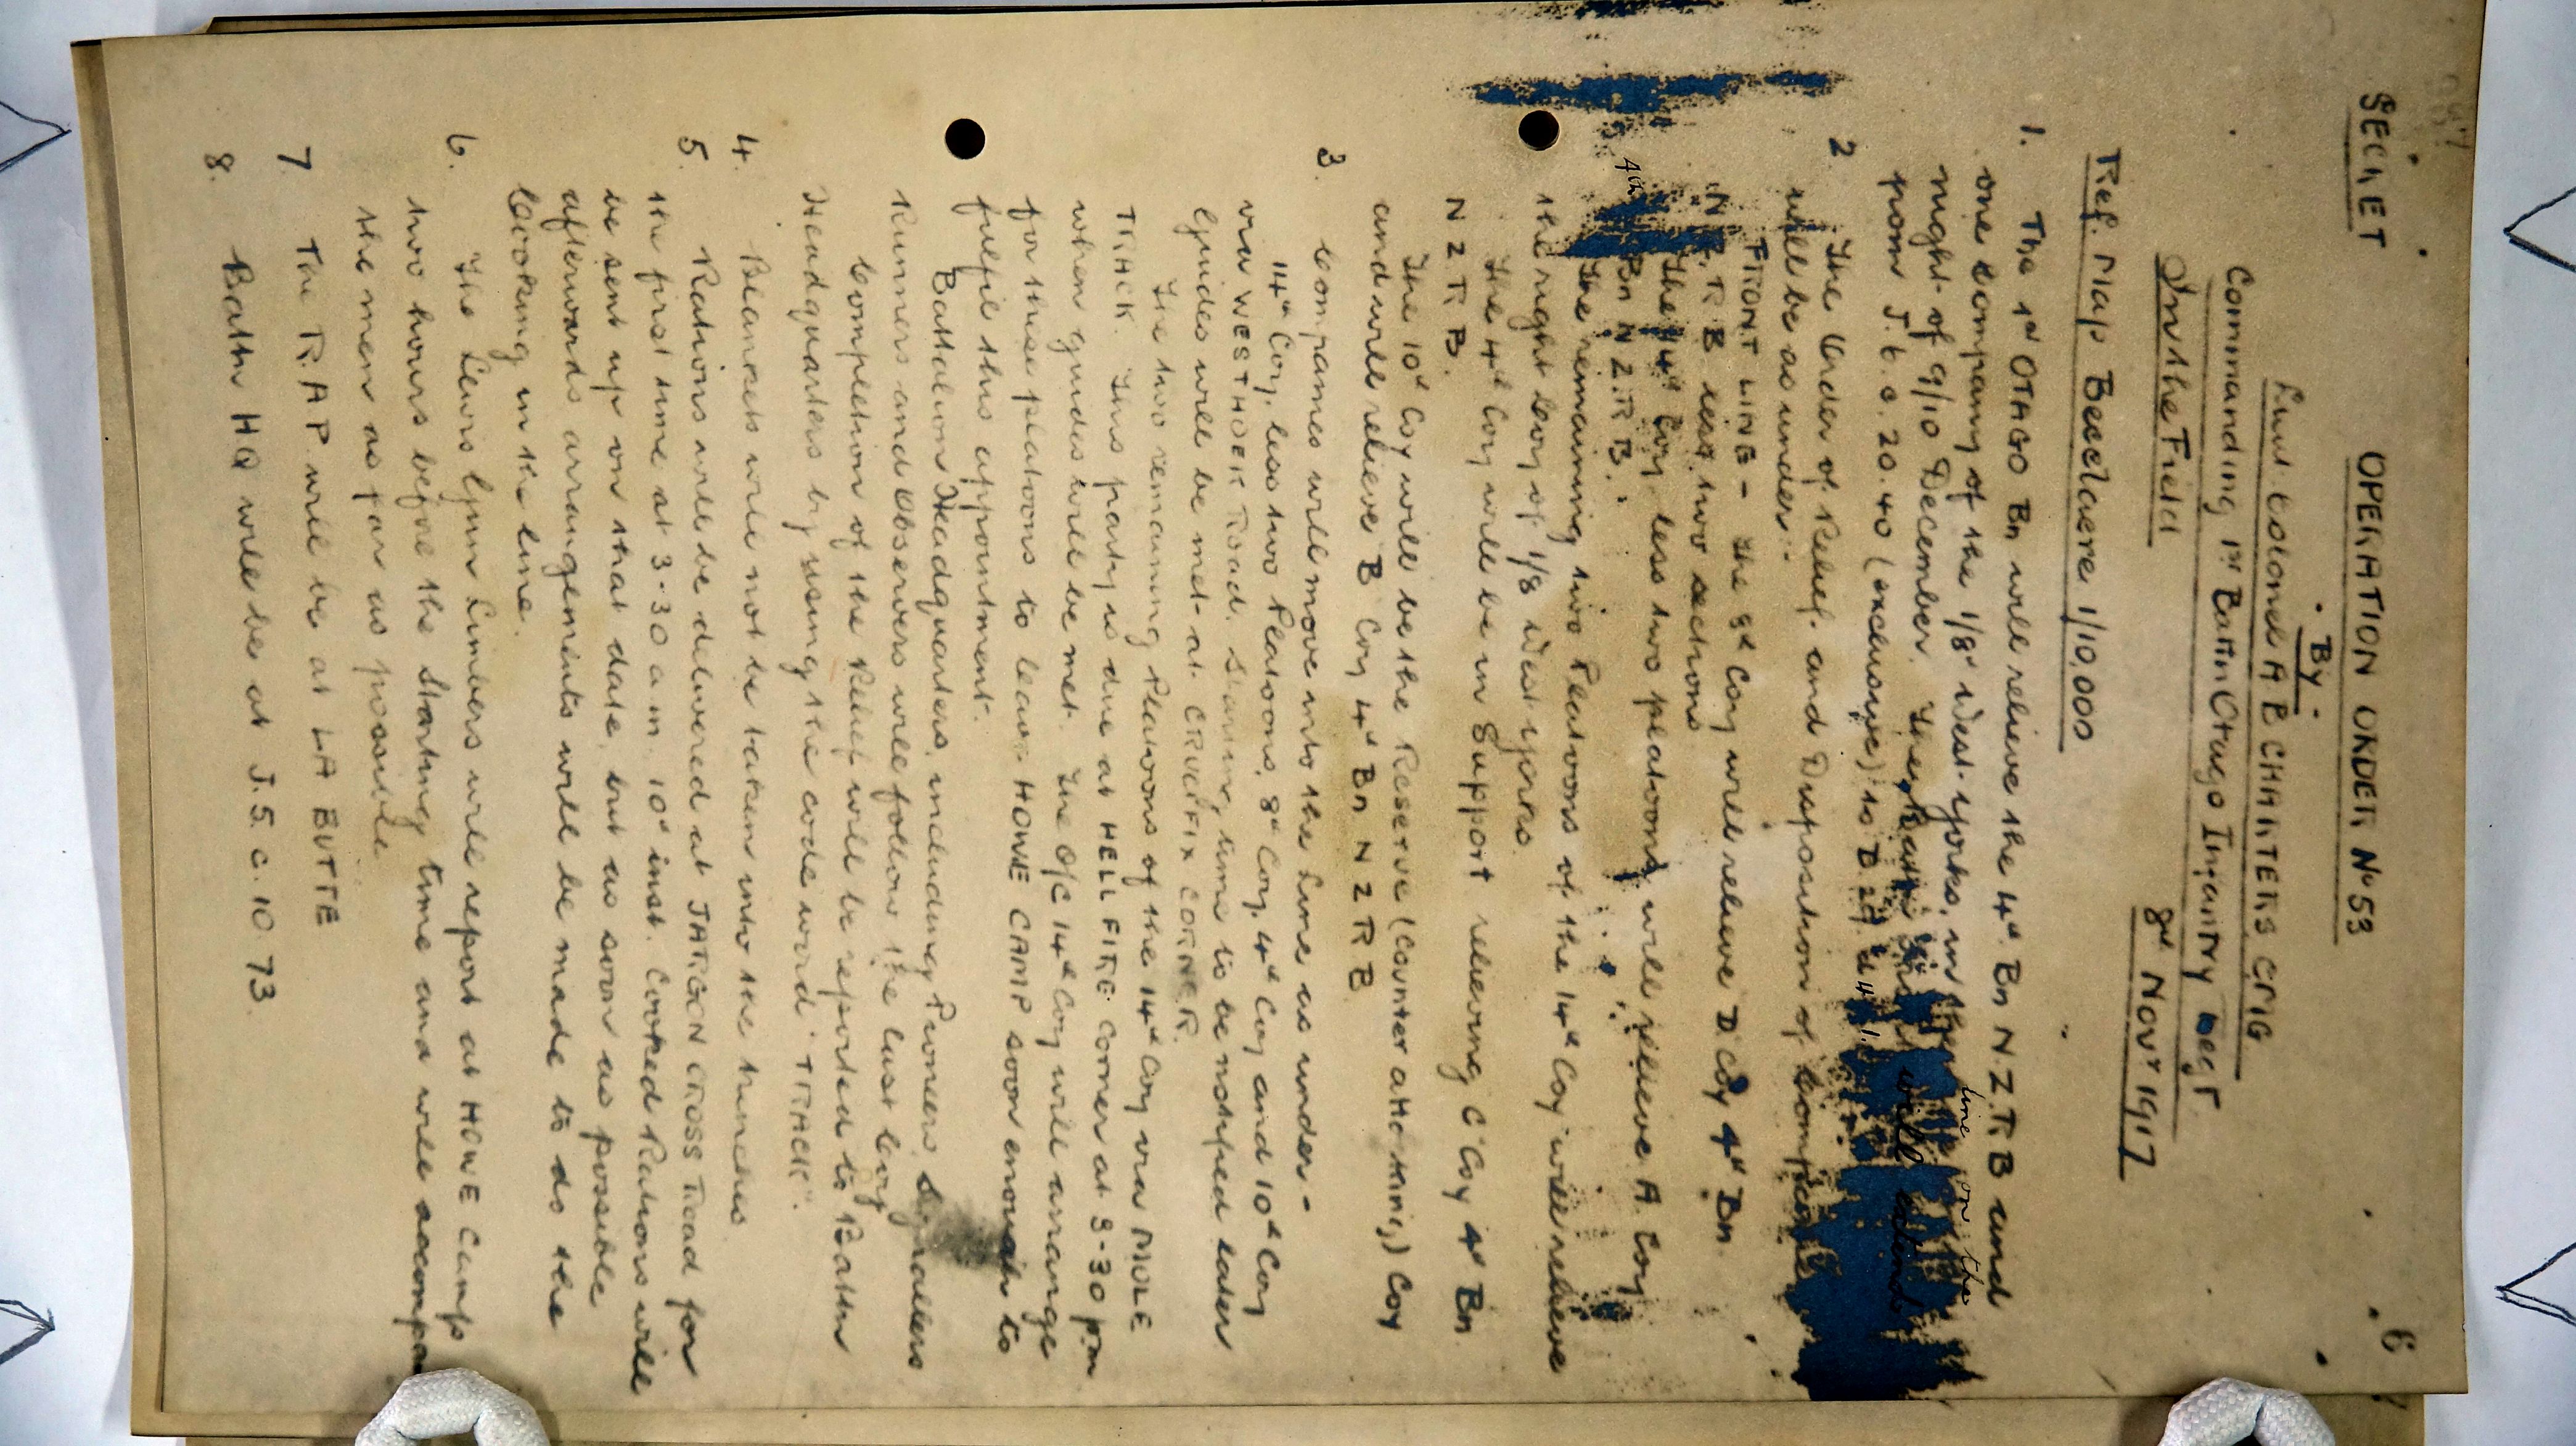 SECRET
6
OPERATION ORDER No 53
- By -
Lieut Colonel A B CHARTERS CMG
Commanding 1st Battn Otago Infantry Regt.
In the Field
8th Novr 1917
Ref. Map Becelaere 1/10,000
1. The 1st OTAGO Bn will relieve the 4th Bn N.Z.R.B and
one company of the 1/8th West Yorks, in the line on the
night of 9/10 December. The will extend
from J.6.c.20.40 (exclusive) to D.
2 The Order of Relief and Disposition of Companies
will be as under:-
FRONT LINE - The 8th Coy will relieve D Coy 4th Bn
N.Z.R B less two sections
The 14th Coy less two platoons, will relieve A Coy
4th Bn N.Z.R B.
The remaining two Platoons of the 14th Coy will relieve
the right Coy of 1/8 West Yorks.
The 4th Coy will be in Support relieving C Coy 4th Bn
N Z R B.
The 10th Coy will be the Reserve (counter attacking) Coy
and will relieve B Coy 4th Bn N Z R B
3. Companies will move into the Line as under -
14th Coy, less two Platoons, 8th Coy, 4th Coy and 10th Coy
via WESTHOEK Road. Starting time to be notified later
Guides will be met at CRUCIFIX CORNER.
The two remaining Platoons of the 14th Coy via MULE
TRACK. This party is due at HELL FIRE Corner at 3-30 pm
when guides will be met. The O/C 14th Coy will arrange
for these platoons to leave HOWE CAMP soon enough to
fulfil this appointment.
Battalion Headquarters, including Pioneers Signallers
Runners and Observers will follow the last Coy
Completion of the Relief will be reported to Battn
Headquarters by using the code word "TRACK".
4. Blankets will not be taken into the trenches
5. Rations will be delivered at JARGON CROSS Road for
the first time at 3-30 a m 10th inst. Cooked Rations will
be sent up on that date, but as soon as possible
afterwards arrangements will be made to do the
Cooking in the line.
6. The Lewis Gun Limbers will report at HOWE Camp
two hours before the Starting time and will accompa
the men as far as possible
7 The R.A.P. will be at LA BUTTE
8. Battn HQ will be at J.5.c.10 73.